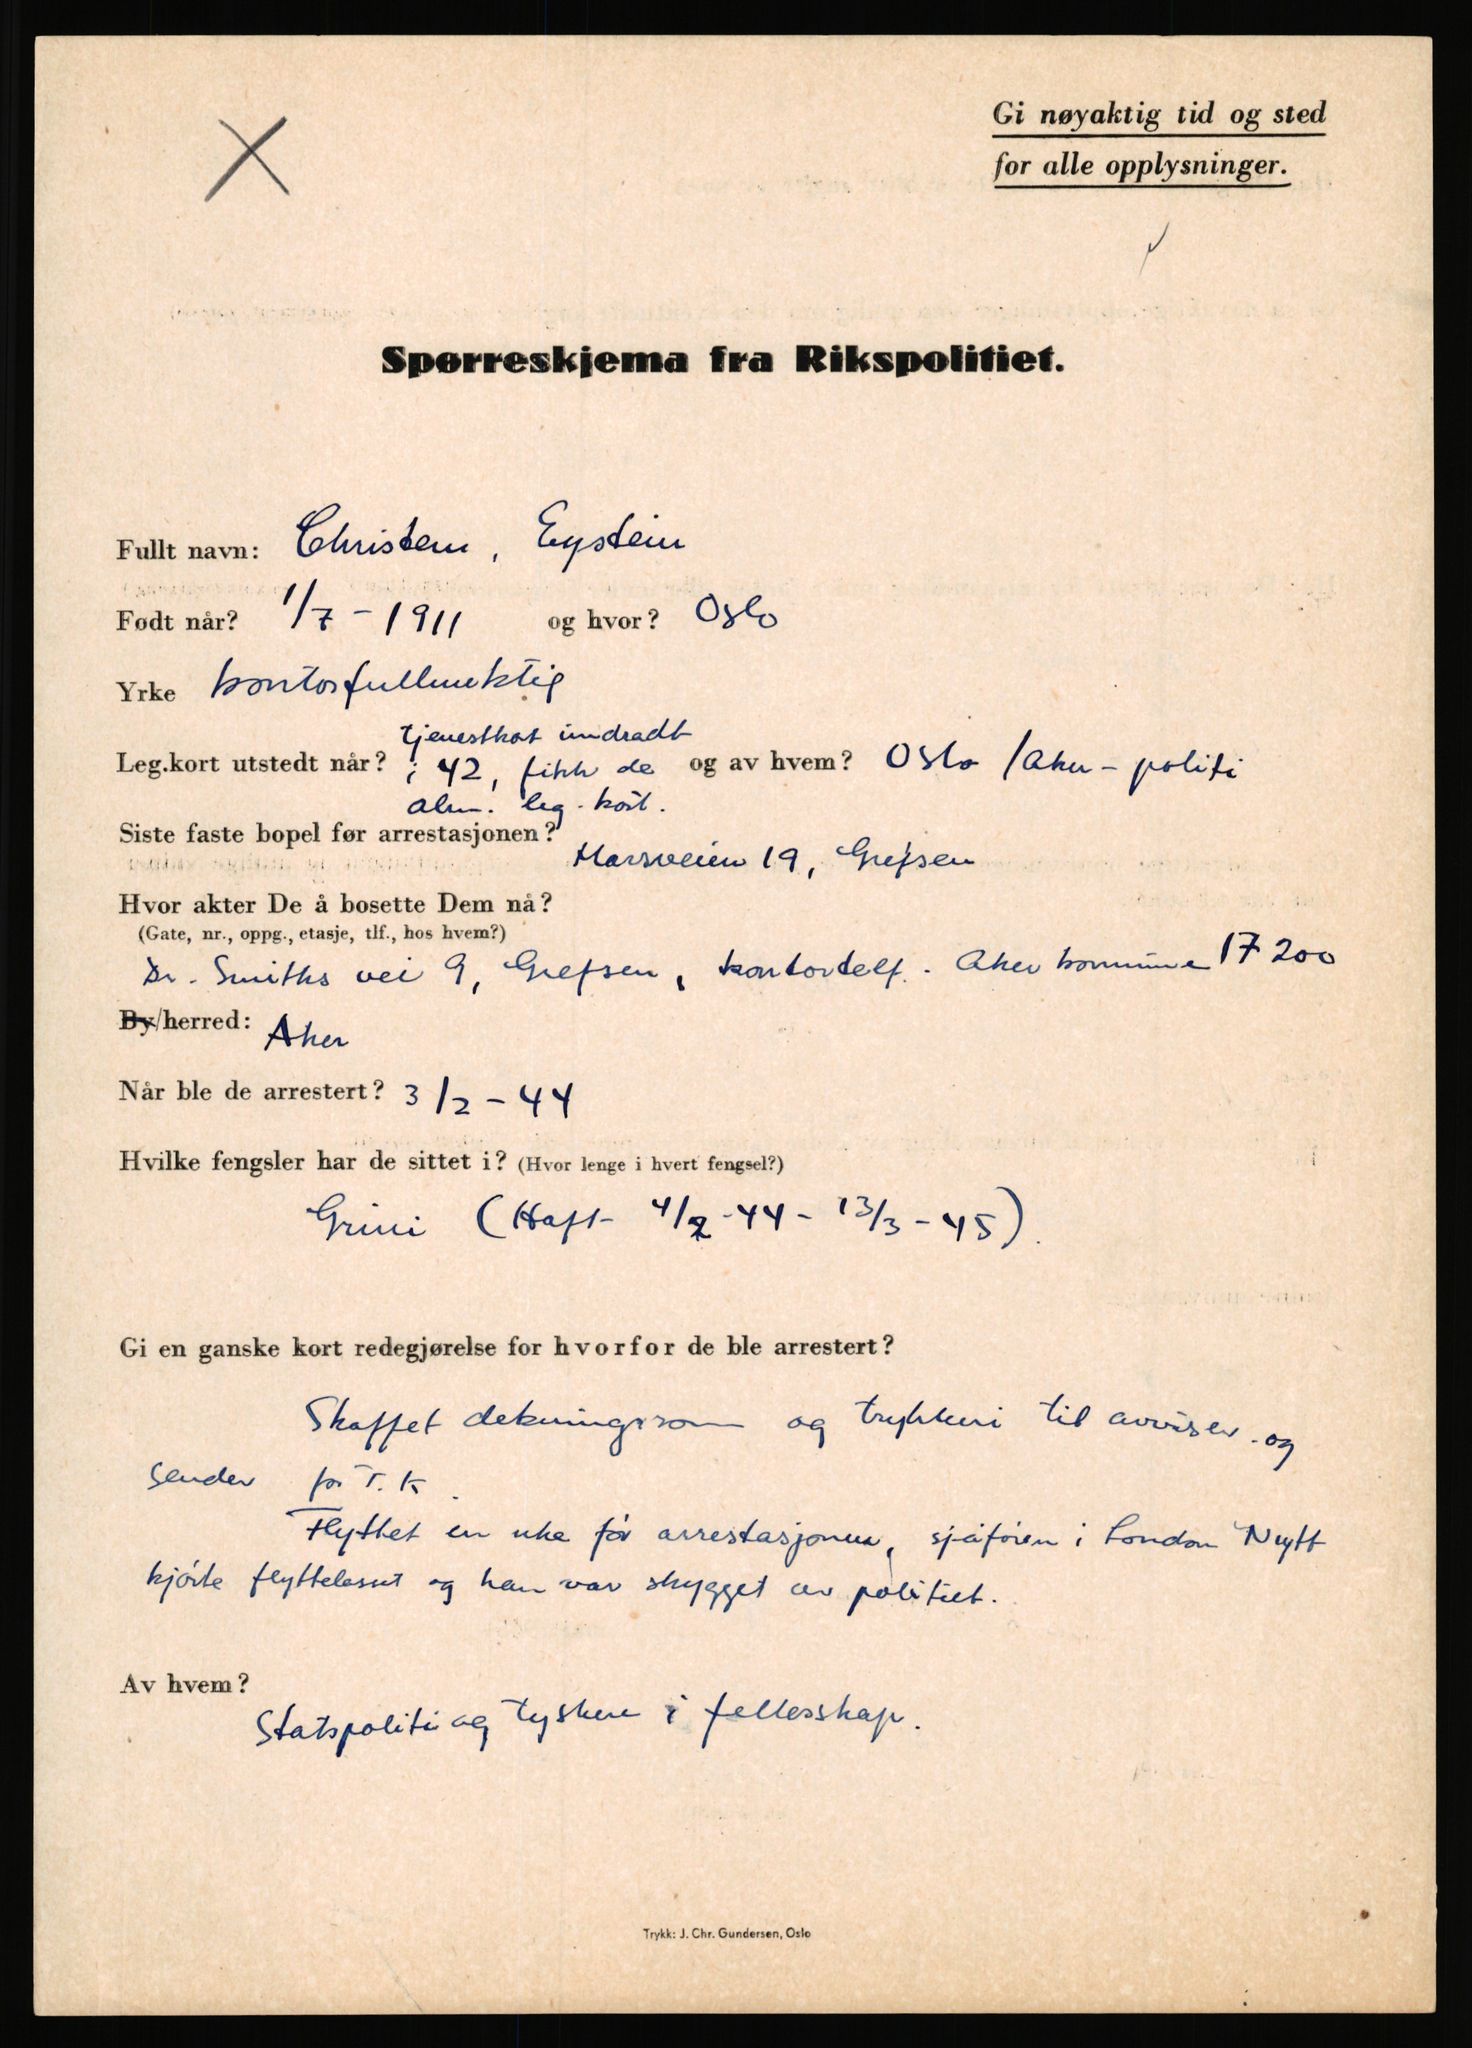 Gi nøyaktig tid og sted
for alle opplysninger.
Spørreskjema fra Rikspolitiet.
Fullt navn: Christem, Eystein
Født når? 1/7 - 1911 og hvor? Oslo
Yrke kontorfullmektig
tjenestkort inndradt
Leg.kort utstedt når? i 42, fikk da og av hvem? Oslo / Aker - politi
alm. leg. kort.
Siste faste bopel før arrestasjonen?
Marsveien 19, Grefsen
Hvor akter De å bosette Dem nå?
(Gate, nr., oppg., etasje, tlf., hos hvem?)
Dr. Smiths vei 9, Grefsen, kontortelf. Aker kommune 17 200
By/herred: Aker
Når ble de arrestert? 3/2 - 44
Hvilke fengsler har de sittet i? (Hvor lenge i hvert fengsel?)
Grini (Haft 4/2 - 44 - 13/3 - 45).
Gi en ganske kort redegjørelse for hvorfor de ble arrestert?
Skaffet dekningsrom og trykkeri til aviser og
sender for T. K.
Flyttet en uke før arrestasjonen, sjåføren i London Nytt
kjørte flyttelasset og han var skygget av politiet.
Av hvem?
Statspoliti og tyskere i fellesskap.
Trykk: J. Chr. Gundersen, Oslo